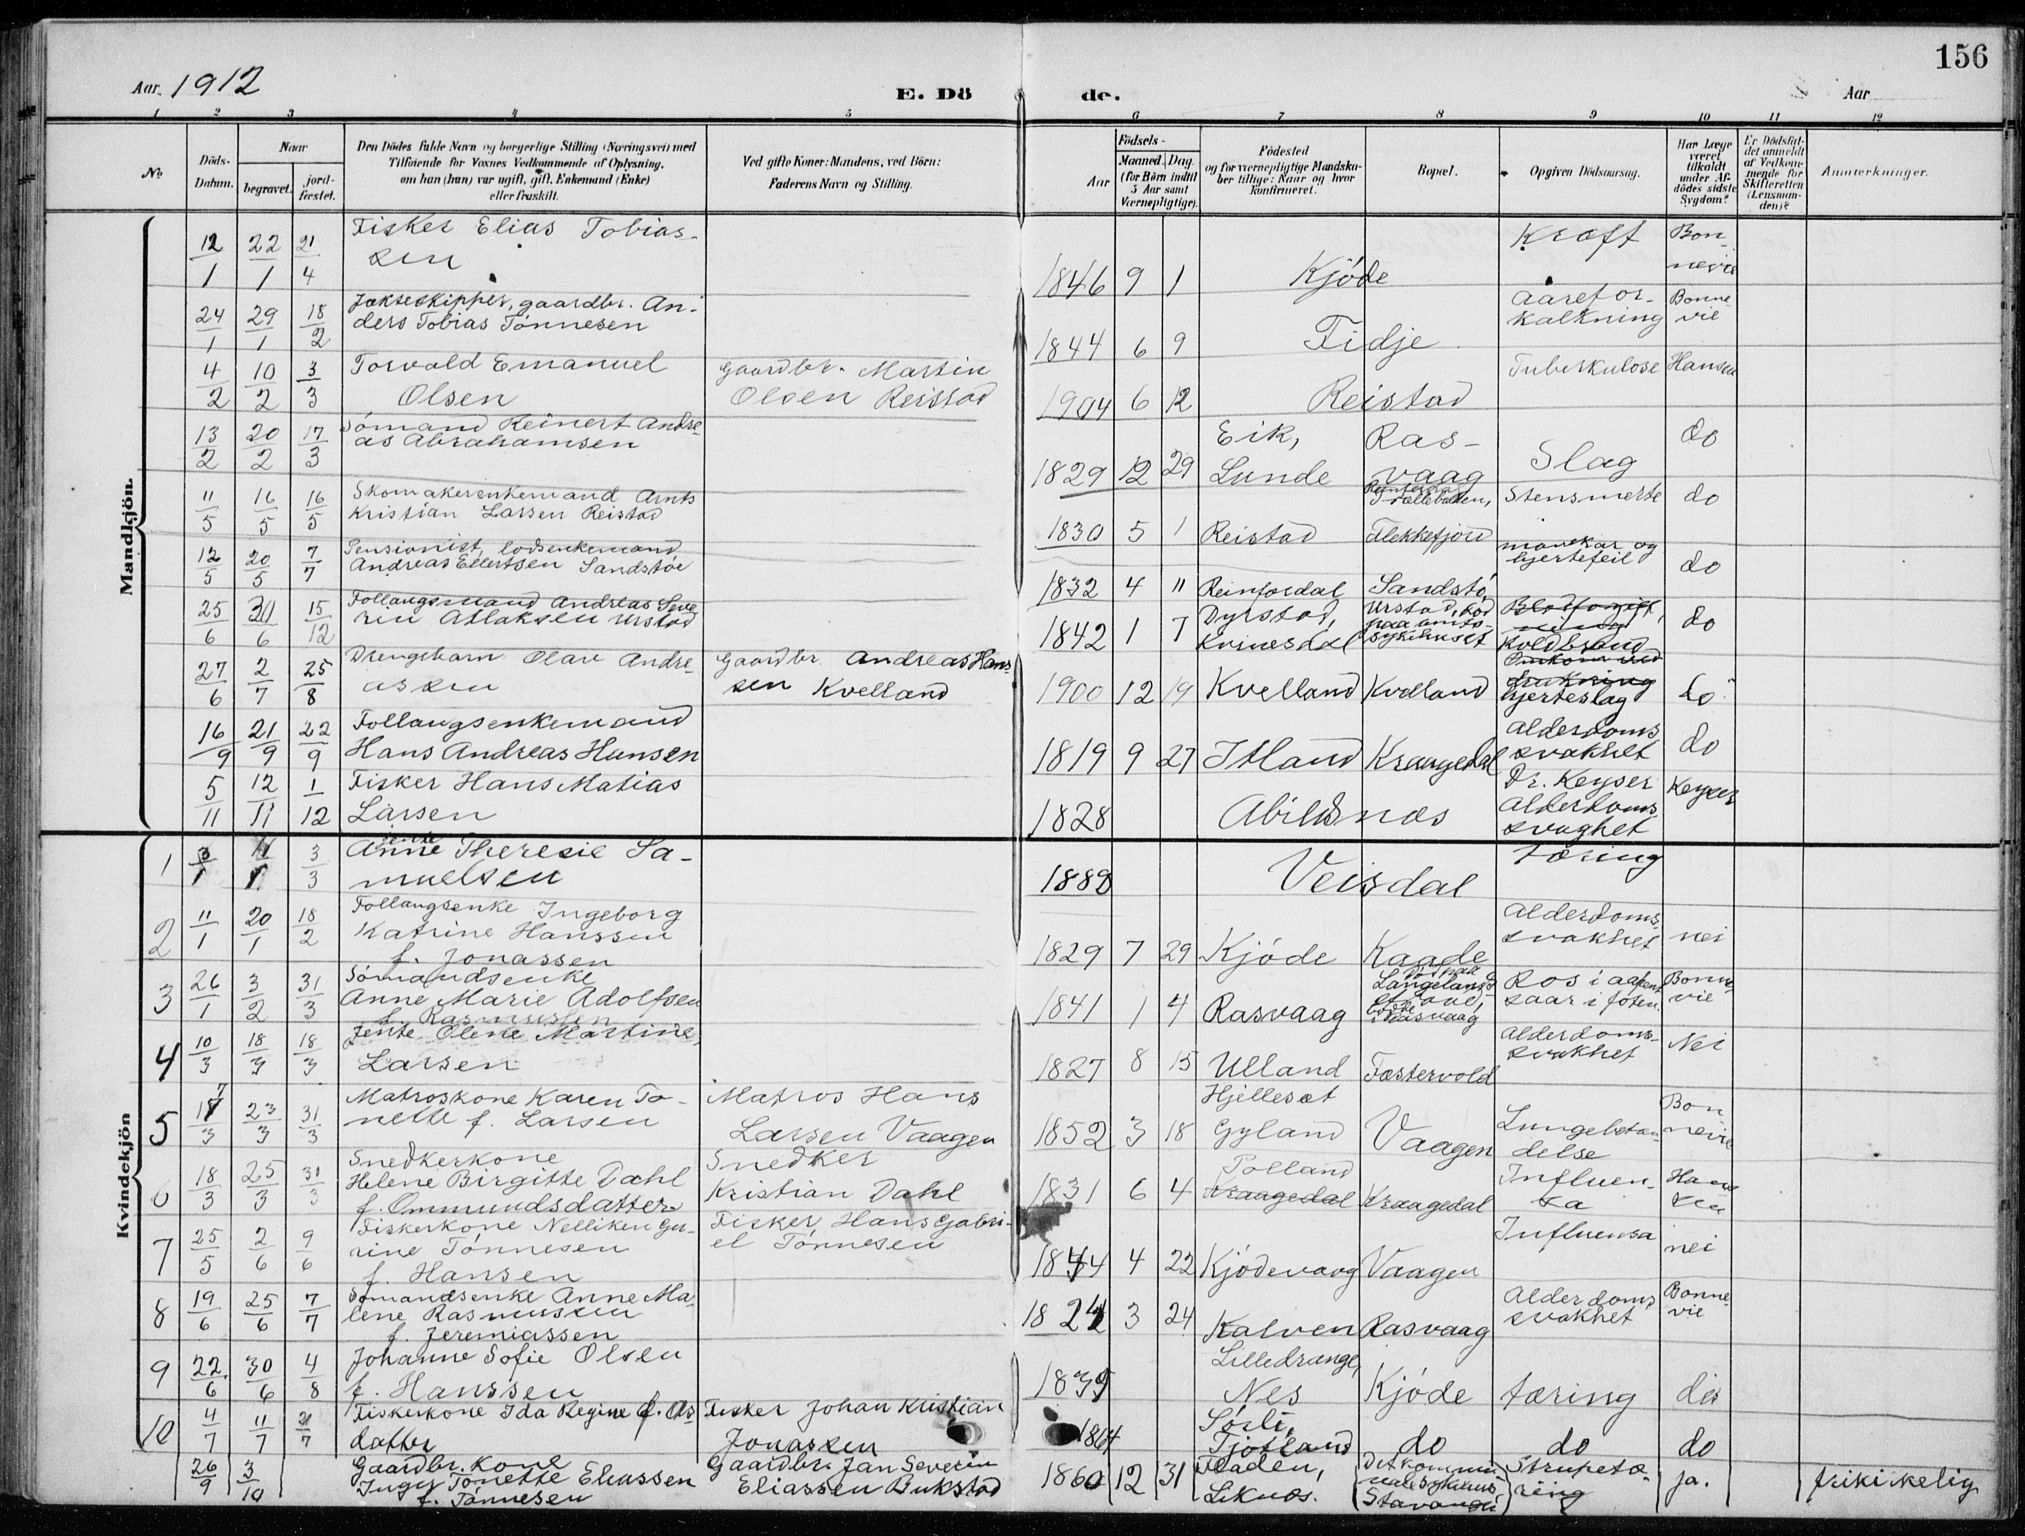 156
Aar. 1912
E. Dö
de.
Aar
1 2 3 4 5 6 7 8 9 10 11 12
№
Döds-
Datum.
Naar
begravet.
jord-
fæstet.
Den Dödes fulde Navn og borgerlige Stilling (Næringsvei) med
Tilföiende for Voxnes Vedkommende af Oplysning,
om han (hun) var ugift, gift, Enkemand (Enke)
eller fraskilt.
Ved gifte Koner: Mandens, ved Börn:
Faderens Navn og Stilling.
Födsels-
Aar
Maaned. Dag.
(for Börn indtil
5 Aar samt
Værnepligtige).
Födested
og for værnepligtige Mandska-
ber tillige: Naar og hvor
konfirmeret.
Bopæl.
Opgiven Dödsaarsag.
Har Læge
været
tilkaldt
under Af-
dödes sidste
Sygdom?
Er Dödsfal-
det anmeldt
af Vedkom-
mende for
Skifteretten
(Lensman-
den)?
Anmerkninger.
Mandkjön.
12/1 22/1 21/4 Fisker Elias Tobias-
sen
1846 9 1 Kjøde Kræft Bon-
nevie
24/1 29/1 18/2 Jakteskipper, gaardbr. An-
ders Tobias Tønnesen
1844 6 9 Fidje Aarefor-
kalkning Bonne-
vie
4/2 10/2 3/3 Torvald Emanuel
Olsen
Gaardbr. Martin
Olsen Reistad
1904 6 12 Reistad Tuberkulose Hansen
13/2 20/2 17/3 Sømand Reinert Andre-
as Abrahamsen
1829 12 29 Eik,
Lunde Ras-
vaag Slag do
11/5 16/5 16/5 Skomakerenkemand Arnts
Kristian Larsen Reistad
1830 5 1 Reistad
Flekkefjord Stensmerte do
12/5 20/5 7/7 Pensionist, lodsenkemand
Andreas Ellertsen Sandstøe
1832 4 11 Reinfosdal Sandstø
hjertefeil do
25/6 30/6 15/12 Follaugsmand Andreas Seve-
rin Atlaksen Urstad
1842 1 7 Dyrstad,
Kvinesdal Urstad, død
paa amts-
sykehuset
Koldbrand do
27/6 2/7 25/8 Drengebarn Olav Andre-
assen
Gaardbr. Andreas Hans-
sen Kvelland
1900 12 19 Kvelland Kvelland
hjerteslag do
16/9 21/9 22/9 Follaugsenkemand
Hans Andreas Hansen
1819 9 27 Itland Kraagedal Alderdoms
svakhet do
5/11 12/11 1/12 Fisker Hans Matias
Larsen
1828 Abilsnæs Dr. Keyser
Alderdoms
svaghet Keyser
Kvindekjön
1 3/3 jente
Anne Theresie Sa-
muelsen
1888 Veisdal Tæring
2 11/1 20/1 18/2 Follaugsenke Ingeborg
Katrine Hanssen
f. Jonassen
1829 7 29 Kjøde Kaade Alderdoms
svakhet nei
3 26/1 3/2 31/3 Sømandsenke
Anne Marie Adolfsen
f. Rasmussen
1841 1 4 Rasvaag
Rasvaag Ros i aapent
saar i foten Bonne-
vie
4 10/3 18/3 18/3 Jente Olene Martine
Larsen
1827 8 15 Ulland Fæstervold Alderdoms-
svakhet Nei
5 17/3 23/3 31/3 Matroskone Karen To-
nette f. Larsen
Matros Hans
Larsen Vaagen
1852 3 18 Hjellesæt
Gyland Vaagen Lungebetæn-
delse Bon
nevie
6 18/3 25/3 30/3 Snedkerkone
Helene Birgitte Dahl
f. Ommundsdatter
Snedker
Kristian Dahl
1831 6 4 Tolland
Kraagedal Kraagedal Influen-
sa Han-
sen
7 25/5 2/6 9/6 Fiskerkone Nelliken Gu-
rine Tønnesen
f. Hansen
Fisker Hans Gabri-
el Tønnesen
1844 4 22 Kjødevaag Vaagen Influensa nei
8 19/6 25/6 7/7 Sømandsenke Anne Ma-
lene Rasmussen
f. Jeremiassen
1824 3 24 Kalven Rasvaag Alderdoms
svakhet Bonne-
vie
9 22/6 30/6 4/8 Johanne Sofie Olsen
f. Hanssen
1835 Lilledrange,
Nes Kjøde tæring do
10 4/7 11/7 21/7 Fiskerkone Ida Regine f. Ols-
datter
Fisker Johan Kristian
Jonassen
1864 Sørli,
Fjotland do do do
26/9 3/10 Gaardbr. kone
Inger Tonette Eliassen
f. Tønnesen
Gaardbr. Jan Severin
Eliassen Bukstad
1860 12 31 Fladen,
Liknæs. Det kommu-
nale sykehus
Stavanger Strupetæ-
ring ja. frikirkelig